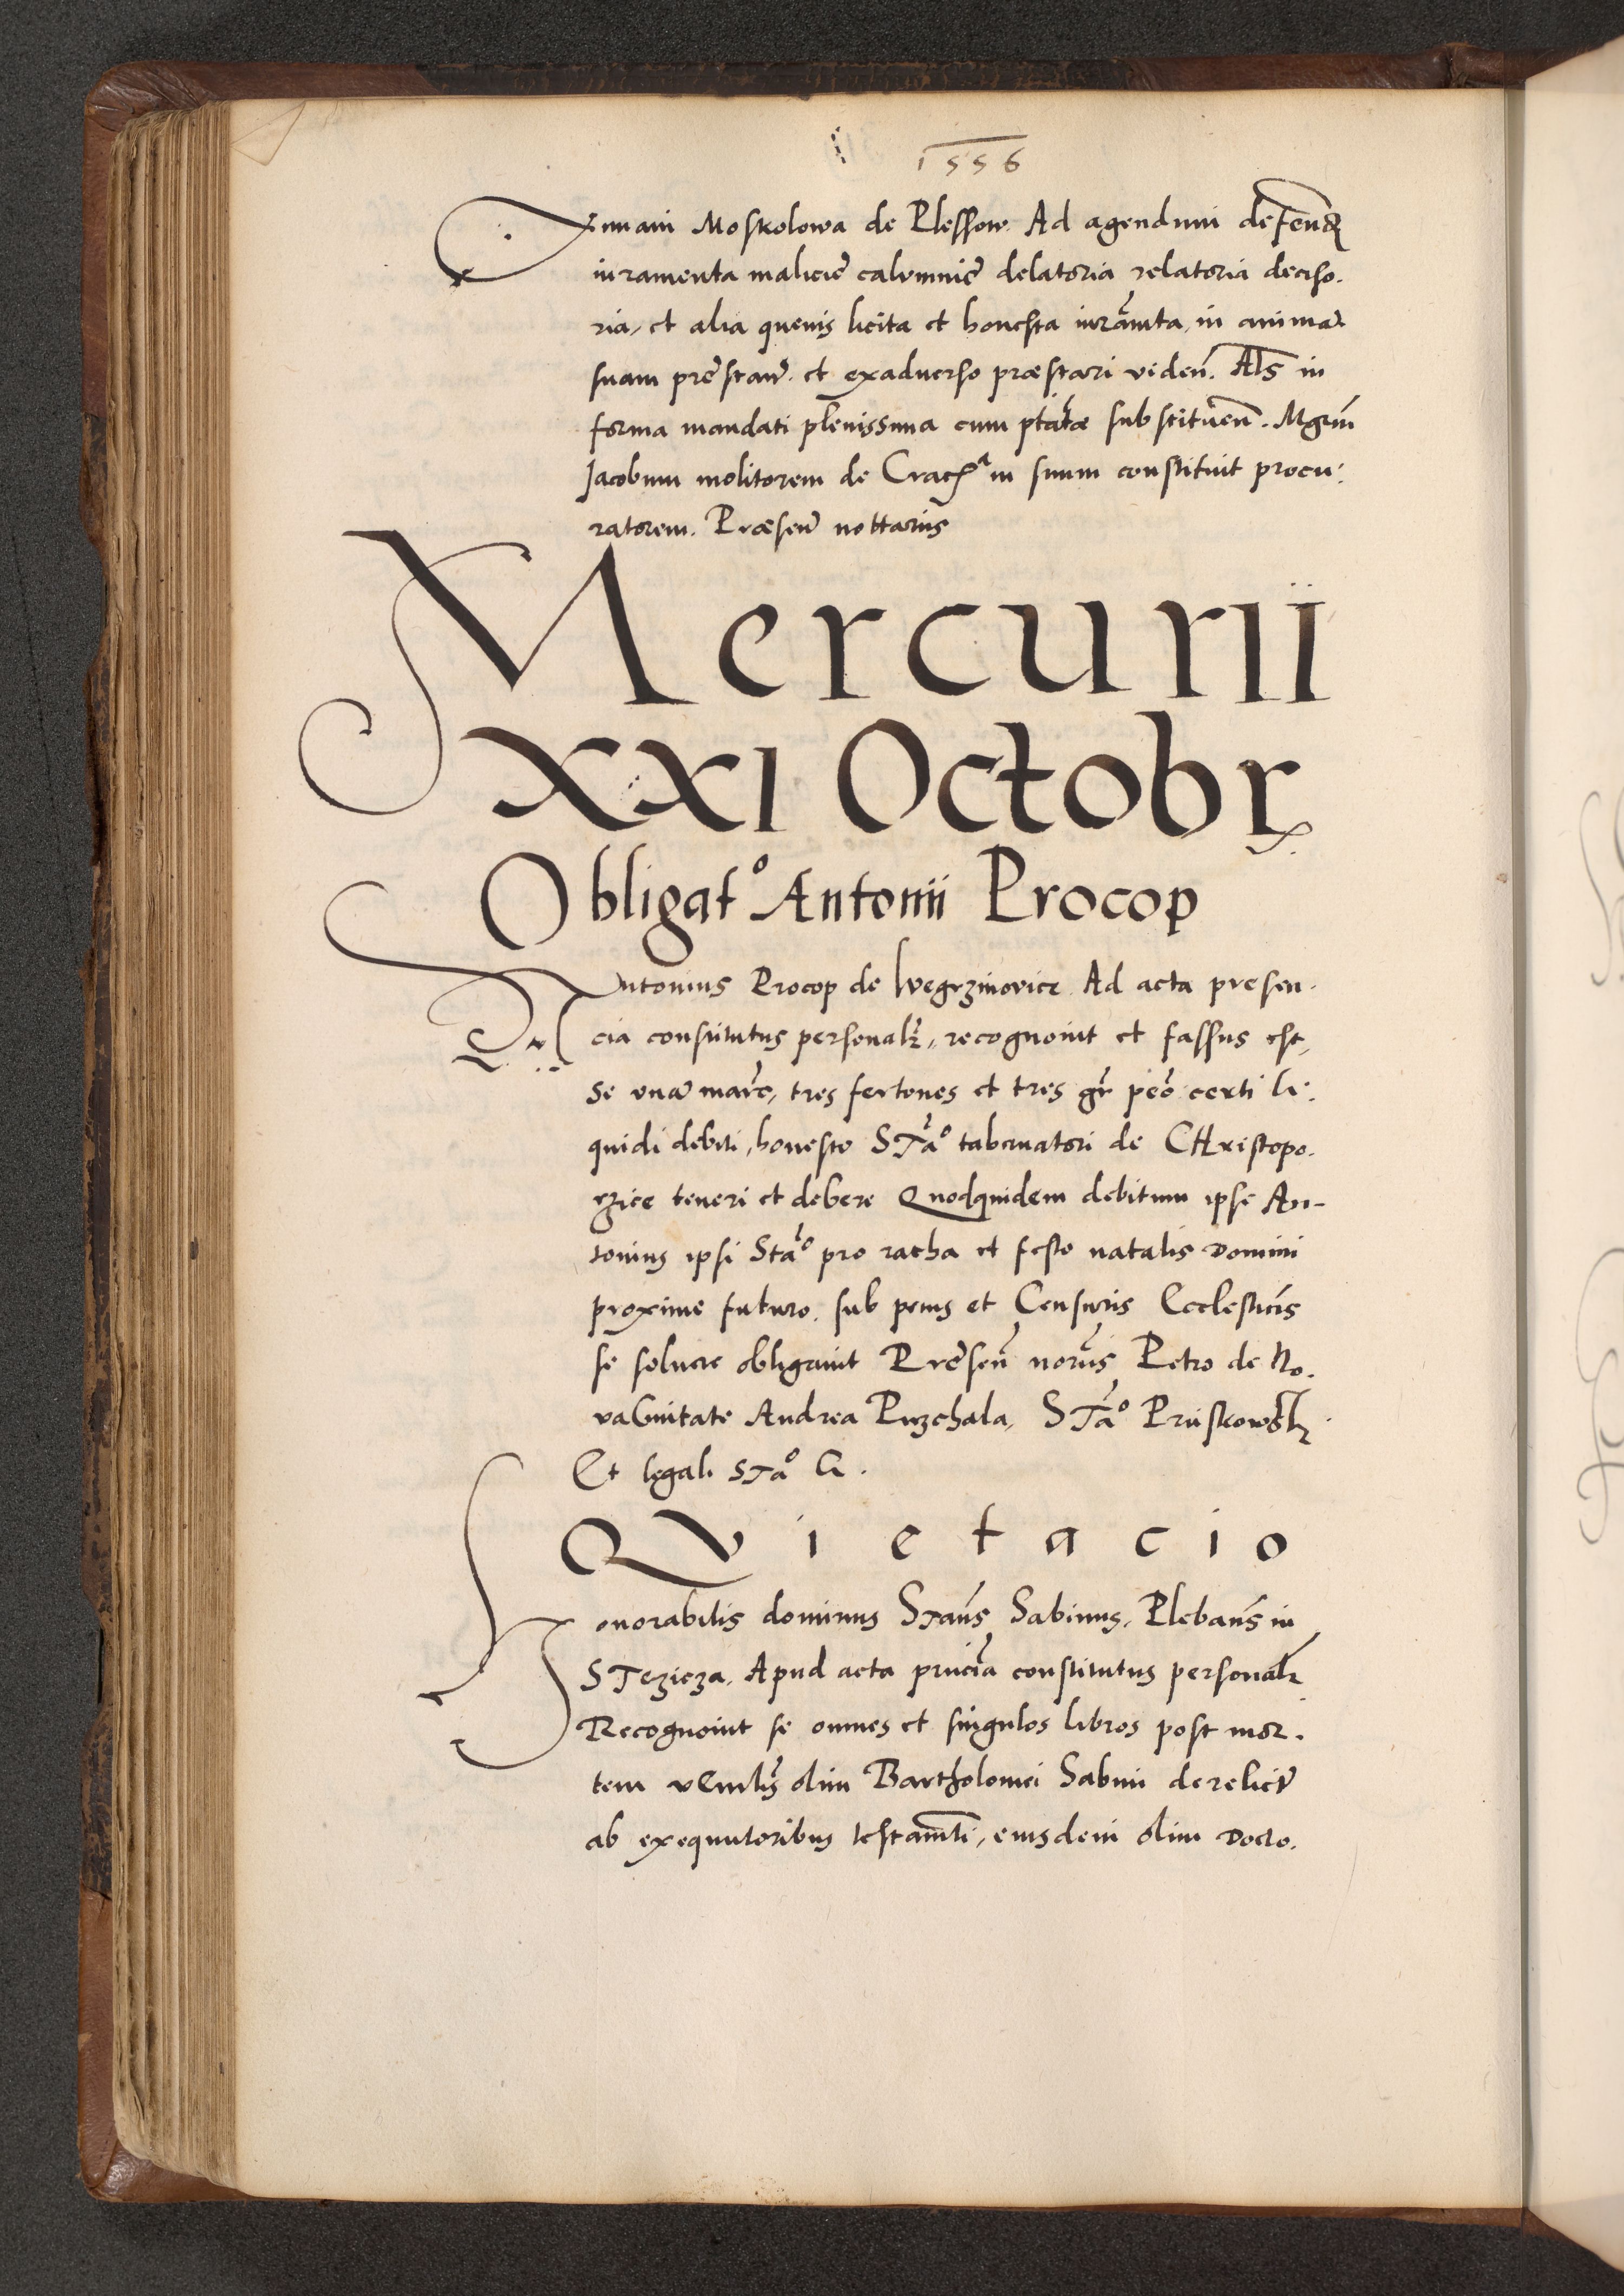 1556
Annam Moskolowa de Plessow. Ad agendum defend
iuramenta malicie calumnie delatoria relatoria deciso.
ria, et alia quevis licita et honesta iurāmta, in animā
suam prestand. et exadverso præstari viden. Als in
forma mandati plenissima cum ptāte substituen. Mgrm
Jacobum molitorem de Crac in suum constituit procu:
ratorem. Præsen nottariis
Mercurii
XXI Octobr
Obligatº Antonii Procop
Antonius Procop de Wegrzinovice. Ad acta presen.
cia constitutus personal, recognovit et fassus est,
Se unā marc, tres fertones et tres gr pec certi li:
quidi debiti, honesto STāº tabernatori de CHristopo.
rzice teneri et debere Quodquidem debitum ipse An-
tonius ipsi Stāº pro racha et festo natalis Domini
proxime futuro. sub penis et Censuris Ecclesticis
se solvere obligavit Presen norīs Petro de No.
vaCivitate Andrea Puzchala, STāº Pruskowsk
Et legali STāº G.
QVietacio
Honorabilis dominus STans Sabinus, Plebans in
STezicza. Apud acta pncia constitutus personal
Recognovit se omnes et singulos libros post mor.
tem vEnlis olim Bartholomei Sabini derelict
ab exequutoribus testamti, eiusdem olim Docto.